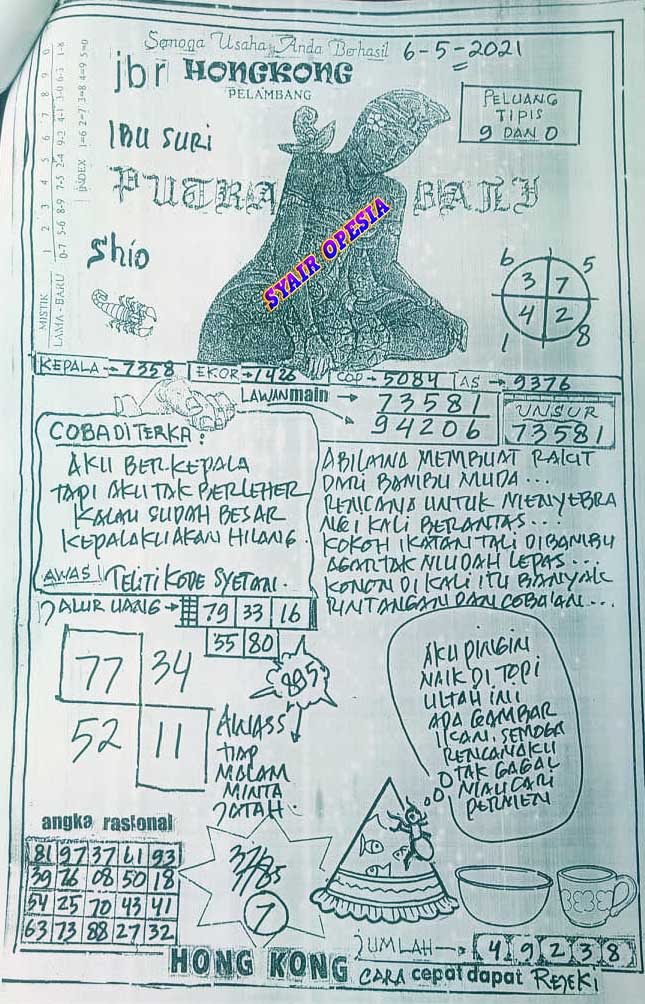 Semoga Usaha Anda Berhasil 6-5-2021
jbr HONGKONG
PELAMBANG
PELUANG
TIPIS
9 DAN 0
IBU SURI
PUTRA BALI
SYAIR OPESIA
Shio
MISTIK
LAMA - BARU
INDEX 1=6 2=7 3=8 4=9 5=0
6 5
3 7
4 2
1 8
KEPALA → 7358 EKOR → 1426 COP → 5084 AS → 9376
LAWAN main → 73581
94206
UNSUR
73581
COBA DITERKA :
AKU BERKEPALA
TAPI AKU TAK BERLEHER
KALAU SUDAH BESAR
KEPALAKU AKAN HILANG.
AWAS! TELITI KODE SYETAN.
ABILAWA MEMBUAT RAKIT
DARI BAMBU MUDA...
RENCANA UNTUK MENYEBRA
NGI KALI BERANTAS...
KOKOH IKATAN TALI DIBAMBU
AGAR TAK MUDAH LEPAS...
KONON DI KALI ITU BANYAK
RINTANGAN DAN COBA'AN...
JALUR UANG → 79 33 16
55 80
77 34
52 11
895
AWASS
TIAP
MALAM
MINTA
JATAH.
AKU PINGIN
NAIK DI TOPI
ULTAH INI
ADA GAMBAR
IKAN. SEMOGA
RENCANAKU
TAK GAGAL
MAU CARI
PERMEN
angka rasional
81 97 37 61 93
39 76 08 50 18
54 25 70 43 41
63 73 88 27 32
7
JUMLAH → 4 9 2 3 8
HONG KONG CARA cepat dapat REJEKI